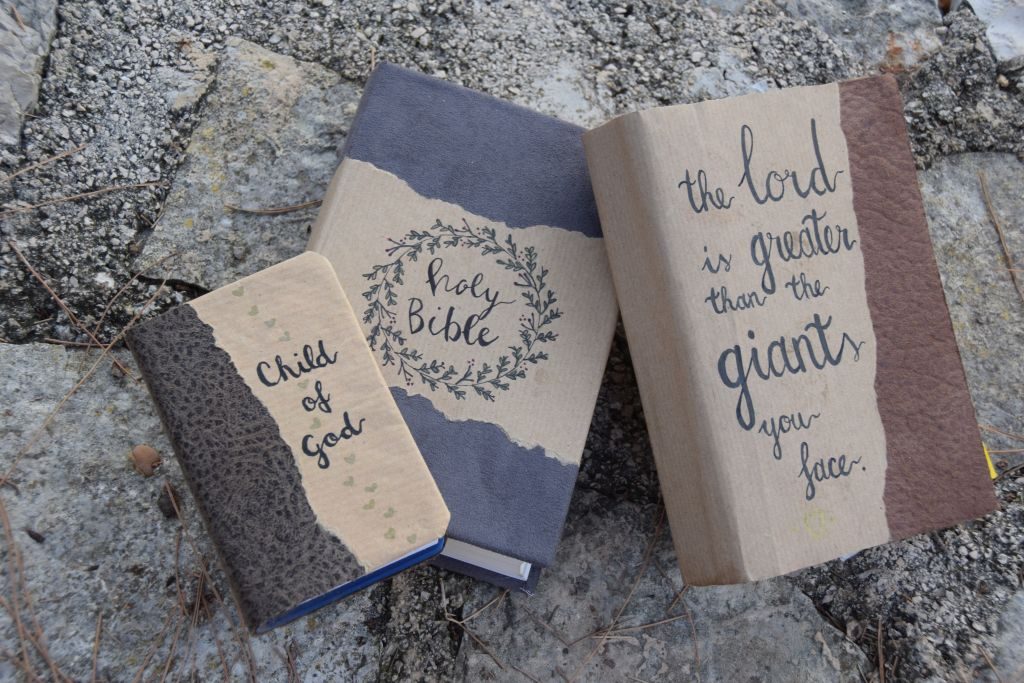 Child
of
God
holy
Bible
the lord
is greater
than the
giants
you
face.